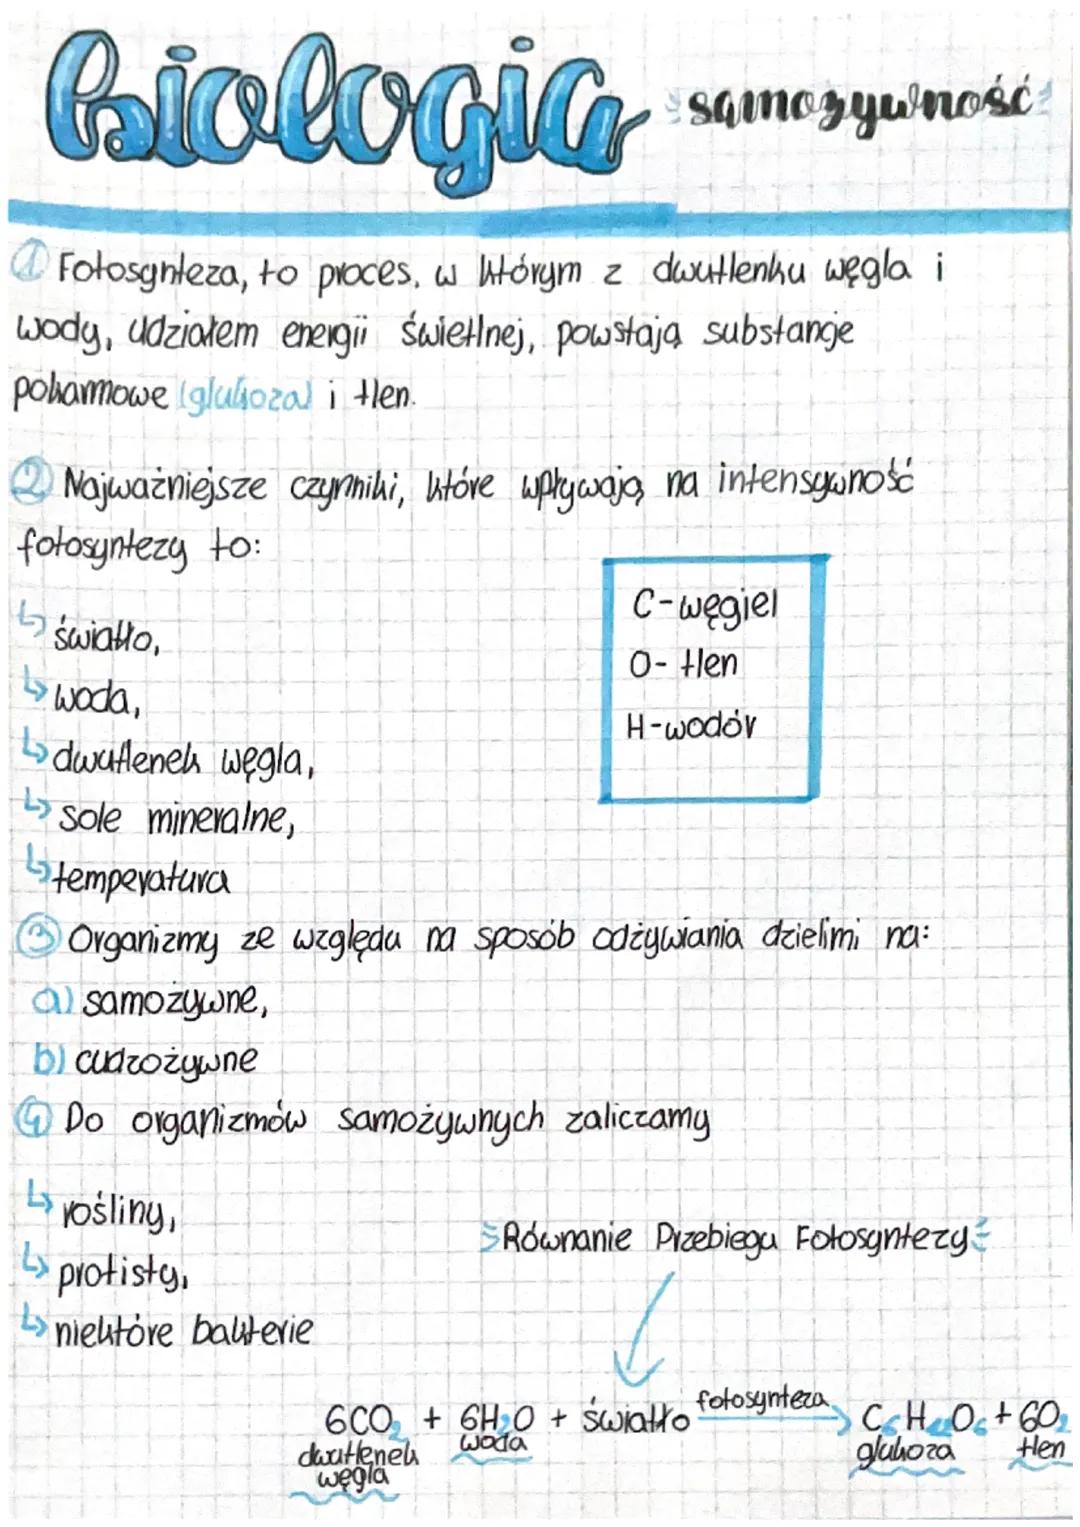 biologia samożywność
① Fotosynteza, to proces, w którym z dwutlenku węgla i
wody, udziałem energii świetlnej, powstają substancje
pokarmowe (glukoza) i tlen.
② Najważniejsze czynniki, które wpływają na intensywność
fotosyntezy to:
↳ światło,
↳ woda,
↳ dwutlenek węgla,
↳ sole mineralne,
↳ temperatura
C-węgiel
O- tlen
H-wodór
③ Organizmy ze względu na sposób odżywiania dzielimi na:
a) samożywne,
b) cudzożywne
④ Do organizmów samożywnych zaliczamy
↳ rośliny,
↳ protisty,
↳ niektóre bakterie
Równanie Przebiegu Fotosyntezy
6CO₂ + 6H₂O + światło fotosynteza → C₆H₁₂O₆ + 6O₂
dwutlenek węgla woda glukoza tlen